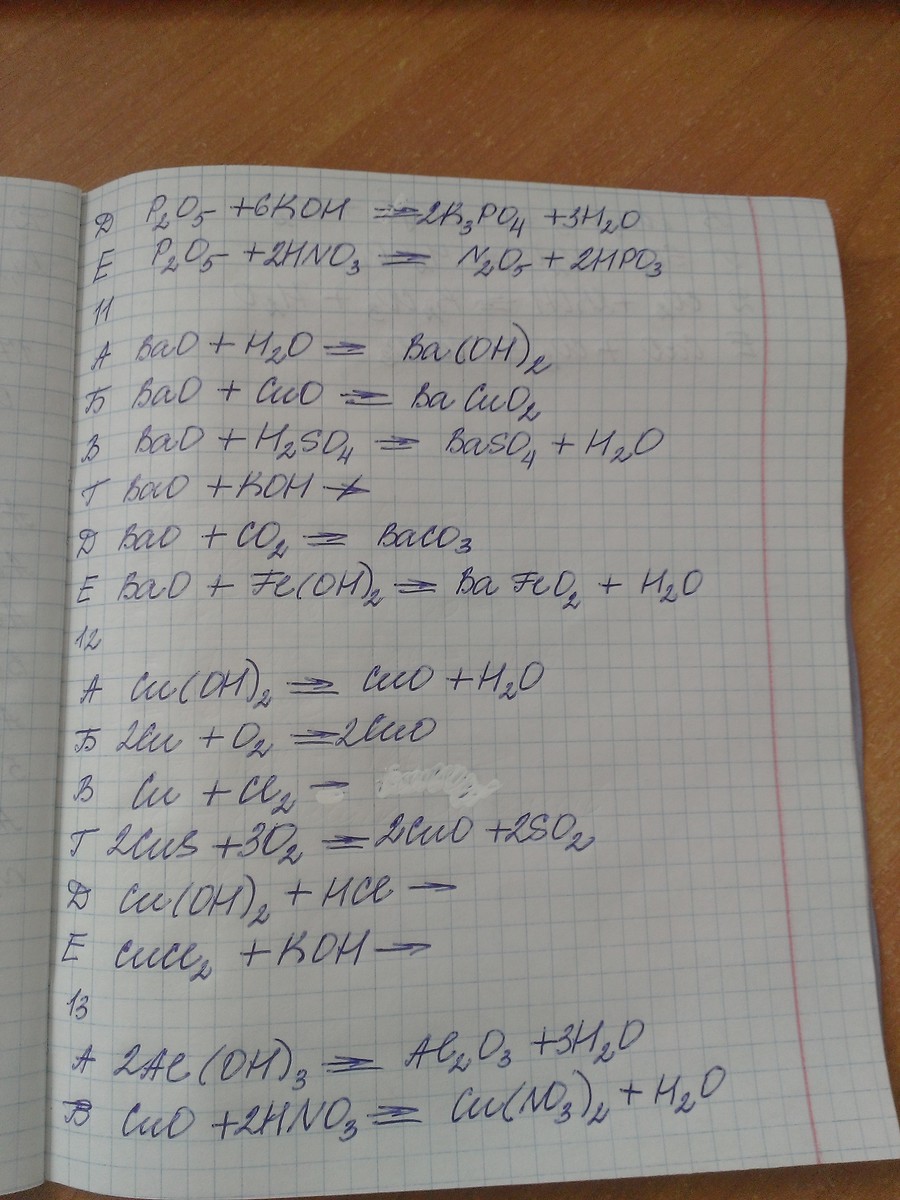 Д P₂O₅ + 6KOH ⇒ 2K₃PO₄ + 3H₂O
Е P₂O₅ + 2HNO₃ = N₂O₅ + 2HPO₃
11
А BaO + H₂O ⇒ Ba(OH)₂
Б BaO + CuO ⇒ BaCuO₂
В BaO + H₂SO₄ ⇒ BaSO₄ + H₂O
Г BaO + KOH ↛
Д BaO + CO₂ ⇒ BaCO₃
Е BaO + Fe(OH)₂ ⇒ BaFeO₂ + H₂O
12
А Cu(OH)₂ ⇒ CuO + H₂O
Б 2Cu + O₂ ⇒ 2CuO
В Cu + Cl₂ →
Г 2CuS + 3O₂ ⇒ 2CuO + 2SO₂
Д Cu(OH)₂ + HCl →
Е CuCl₂ + KOH →
13
А 2Al(OH)₃ ⇒ Al₂O₃ + 3H₂O
В CuO + 2HNO₃ ⇒ Cu(NO₃)₂ + H₂O